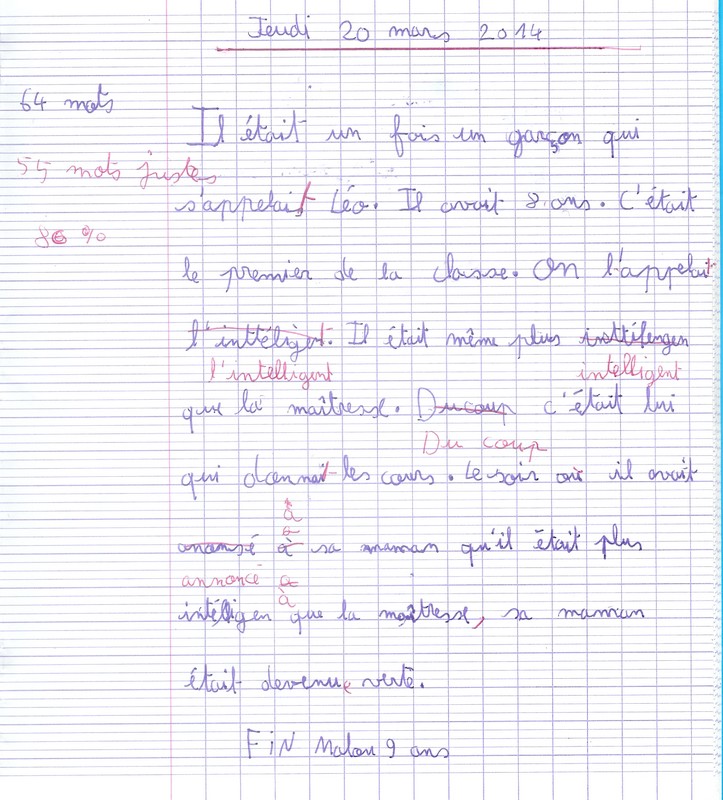 Jeudi 20 mars 2014
64 mots
Il était un fois un garçon qui
55 mots justes
s'appelait Léo. Il avait 8 ans. C'était
86 %
le premier de la classe. On l'appelait
l'inttéligt. Il était même plus insttilengen
l'intelligent intelligent
que la maîtresse. Ducoup c'était lui
Du coup
qui donnait les cours. Le soir où il avait
à
a
anonsé à sa maman qu'il était plus
annoncé a
à
intélligen que la maîtresse, sa maman
était devenue verte.
FiN Malou 9 ans